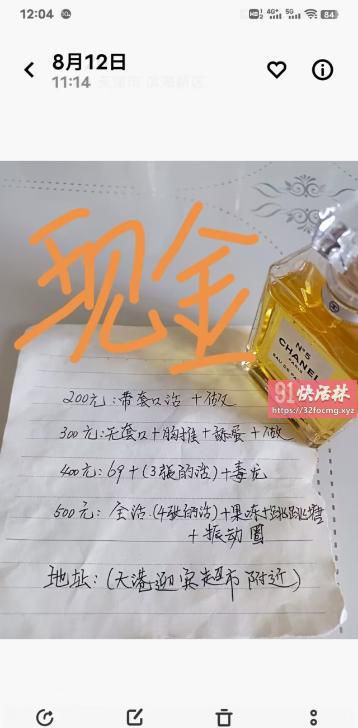 12:04
84
8月12日
11:14
现金
N°5
CHANEL
91快活林
https://32focmg.xyz
200元:带套口活+做
300元:无套口+胸推+舔蛋+做
400元:69+(3张的活)+毒龙
500元:全活.(4张的活)+果冻+跳跳糖
+振动圈
地址:(大港迎宾超市附近)